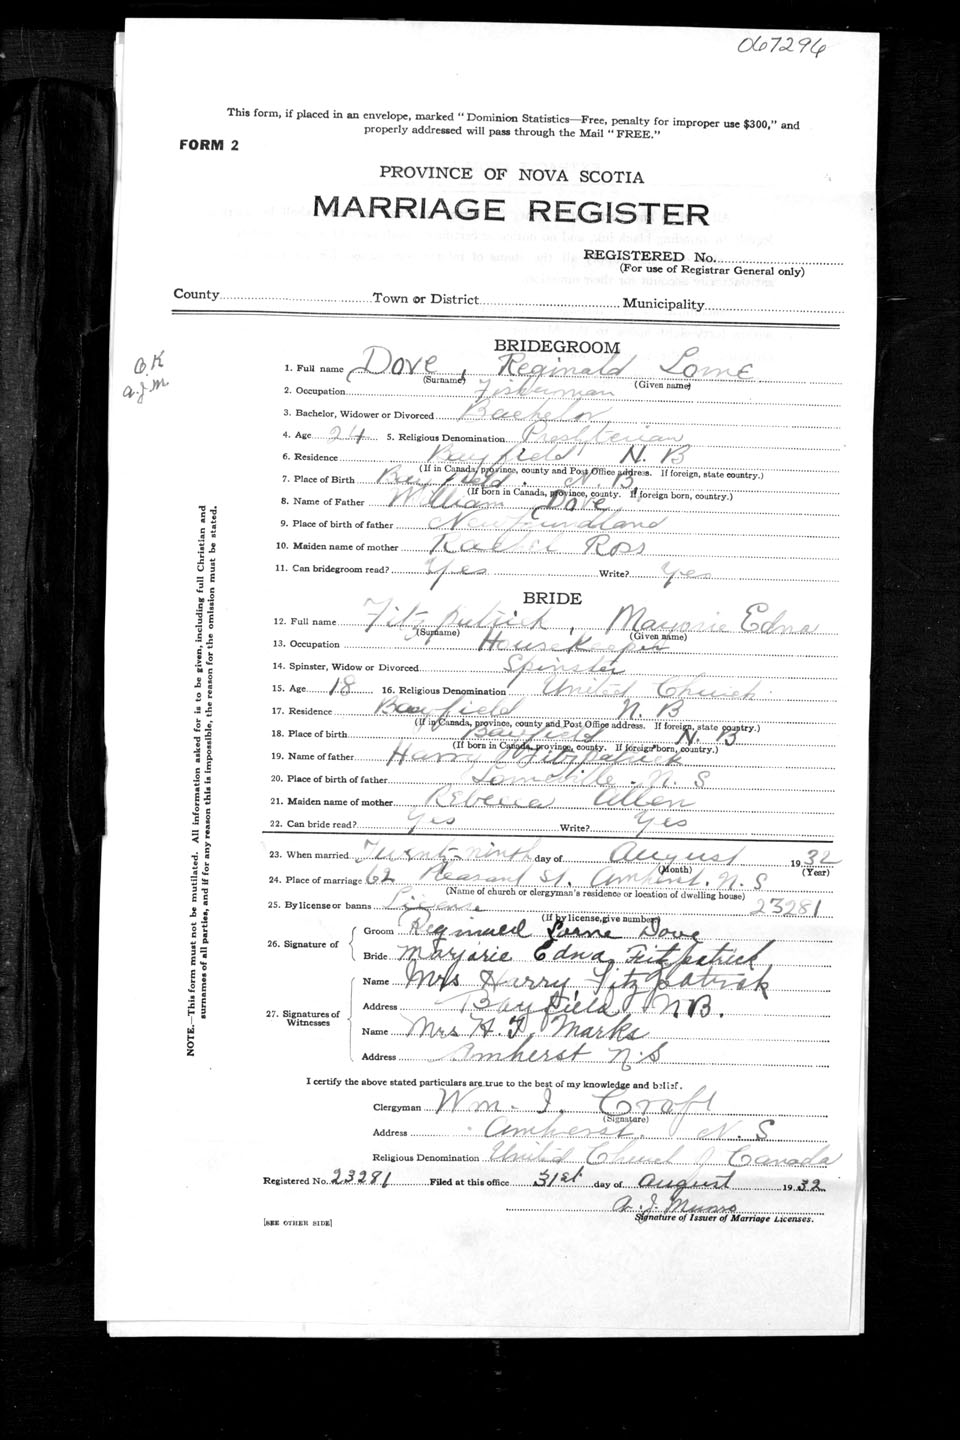 067296
This form, if placed in an envelope, marked "Dominion Statistics—Free, penalty for improper use $300," and
properly addressed will pass through the Mail "FREE."
FORM 2
PROVINCE OF NOVA SCOTIA
MARRIAGE REGISTER
REGISTERED No.
(For use of Registrar General only)
County Town or District Municipality
O.K
A.J.M
BRIDEGROOM
1. Full name Dove, Reginald Lorne
(Surname) (Given name)
2. Occupation Fisherman
3. Bachelor, Widower or Divorced Bachelor
4. Age 24 5. Religious Denomination Presbyterian
6. Residence Bayfield N. B
(If in Canada, province, county and Post Office address. If foreign, state country.)
7. Place of Birth Bayfield. N. B
(If born in Canada, province, county. If foreign born, country.)
8. Name of Father William Dove
9. Place of birth of father Newfoundland
10. Maiden name of mother Rachel Ross
11. Can bridegroom read? Yes Write? Yes
BRIDE
12. Full name Fitzpatrick, Marjorie Edna
(Surname) (Given name)
13. Occupation Housekeeper
14. Spinster, Widow or Divorced Spinster
15. Age 18 16. Religious Denomination United Church
17. Residence Bayfield N. B
(If in Canada, province, county and Post Office address. If foreign, state country.)
18. Place of birth Bayfield N. B
(If born in Canada, province, county. If foreign born, country.)
19. Name of father Harry Fitzpatrick
20. Place of birth of father Lorneville. N. S
21. Maiden name of mother Rebecca Allen
22. Can bride read? Yes Write? Yes
23. When married Twenty-ninth day of August 1932
(Month) (Year)
24. Place of marriage 62 Pleasant St. Amherst. N. S
(Name of church or clergyman's residence or location of dwelling house)
25. By license or banns License 23281
(If by license, give number)
26. Signature of Groom Reginald Lorne Dove
Bride Marjorie Edna Fitzpatrick
27. Signatures of Witnesses Name Mrs Harry Fitzpatrick
Address Bayfield, N.B.
Name Mrs H. F. Marks
Address Amherst N.S
I certify the above stated particulars are true to the best of my knowledge and belief.
Clergyman Wm. I. Croft
(Signature)
Address Amherst, N. S
Religious Denomination United Church of Canada
Registered No. 23281 Filed at this office 31st day of August 1932
A. J. Munro
Signature of Issuer of Marriage Licenses.
[SEE OTHER SIDE]
NOTE.—This form must not be mutilated. All information asked for is to be given, including full Christian and
surnames of all parties, and if for any reason this is impossible, the reason for the omission must be stated.